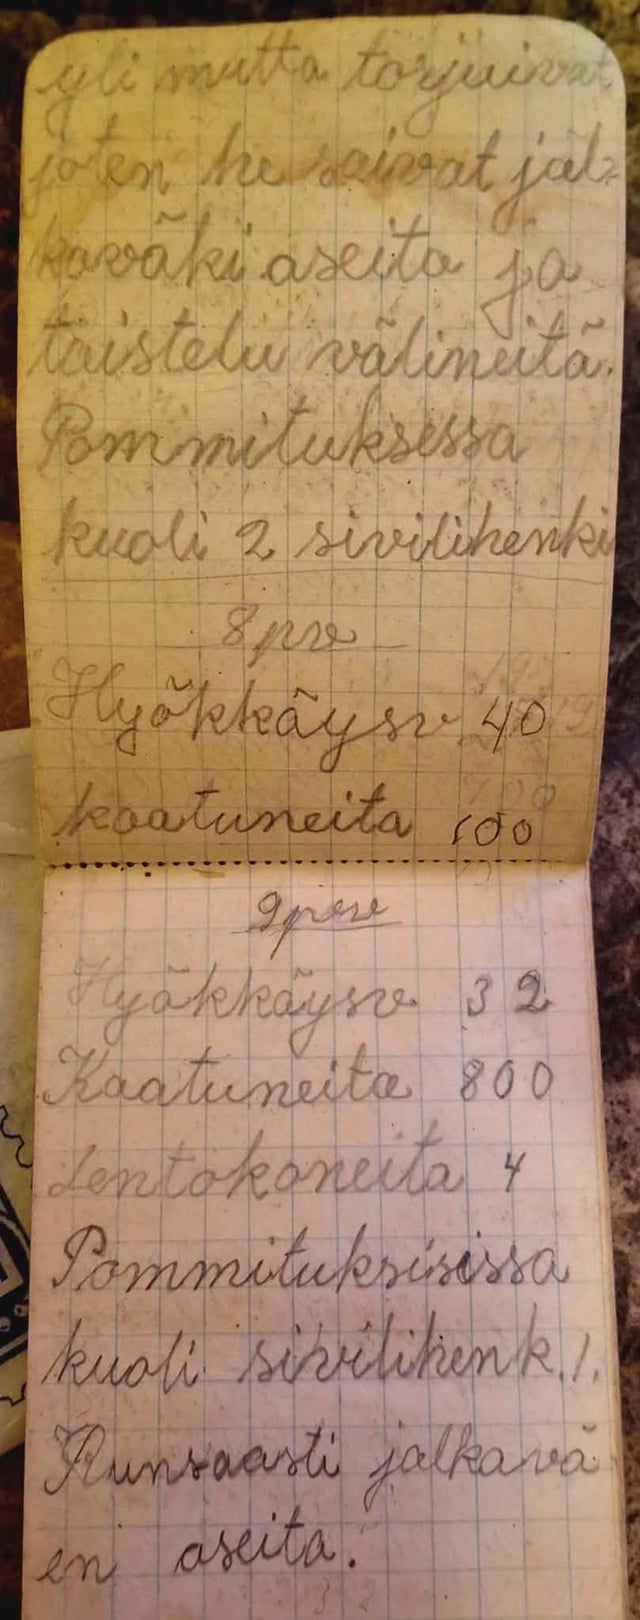 yli mutta torjuivat
joten he saivat jal=
kaväki aseita ja
taistelu välineitä.
Pommituksessa
kuoli 2 sivilihenki
8 pv
Hyökkäysv 40
kaatuneita 100
9 pv
Hyökkäysv 32
Kaatuneita 800
Lentokoneita 4
Pommituksisissa
kuoli sivilihenk. 1.
Runsaasti jalkavä
en aseita.